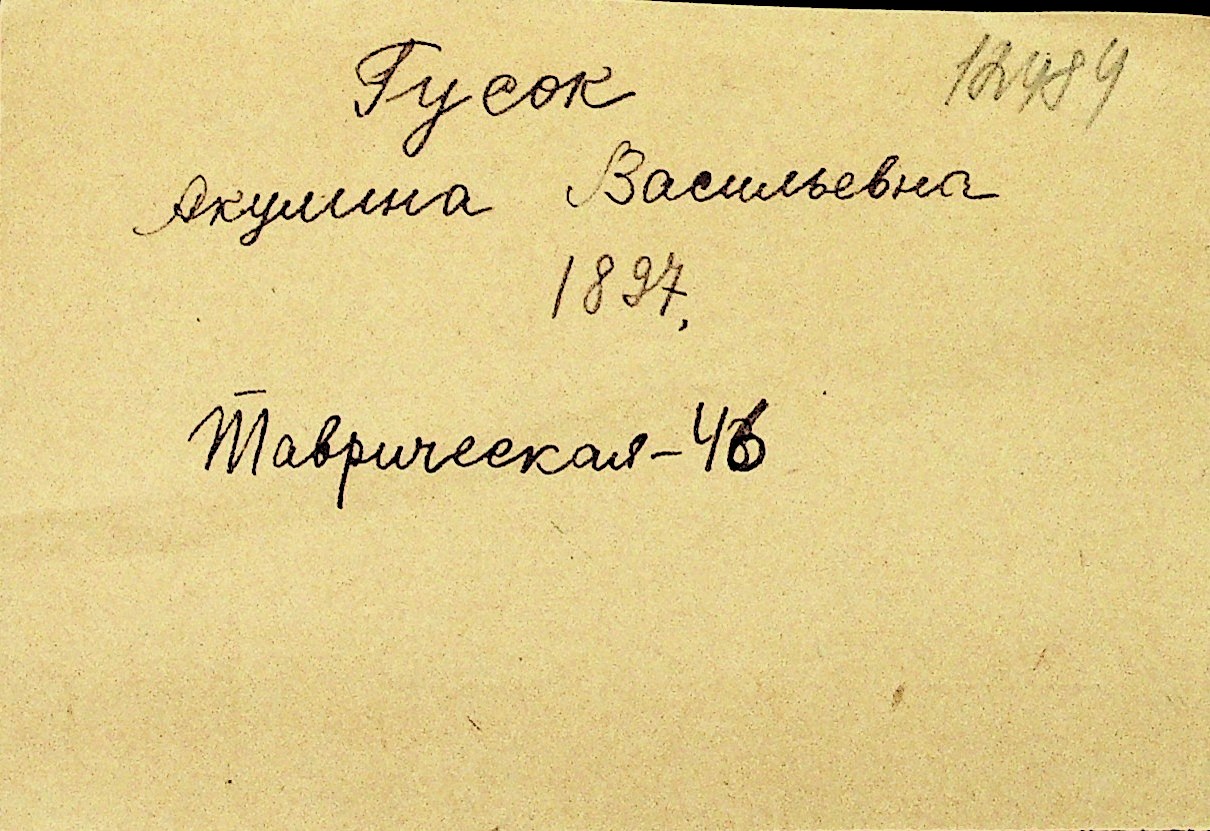 12484
Гусок
Акулина Васильевна
1897.
Таврическая-46